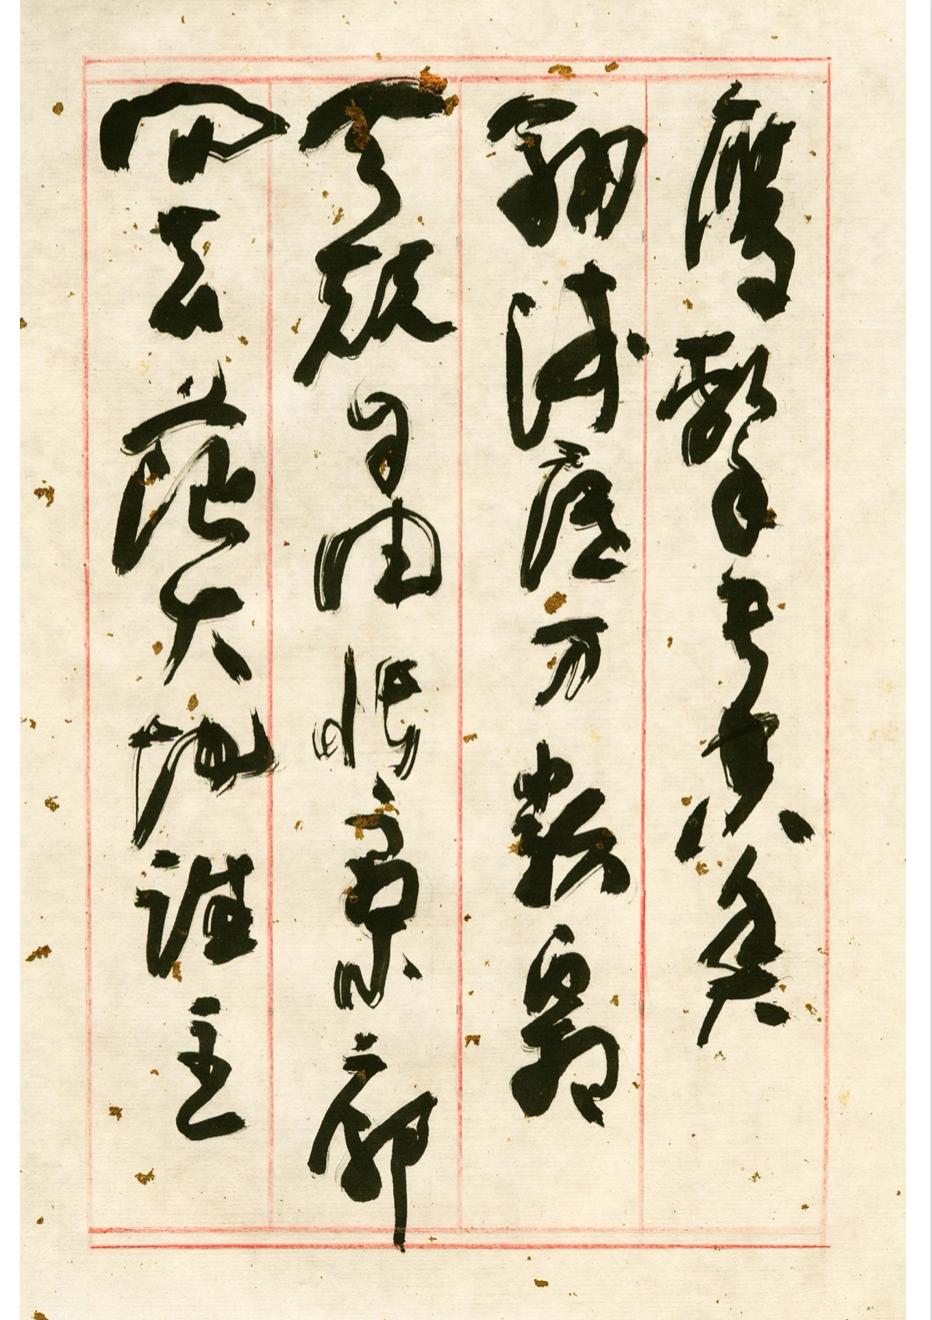 鹰击长空鱼
翔浅底万类霜
天竞自由怅寥廓
问苍茫大地谁主